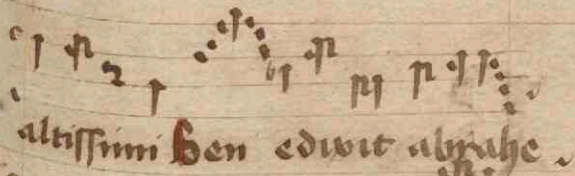 altissimi Ben edixit abrahe.